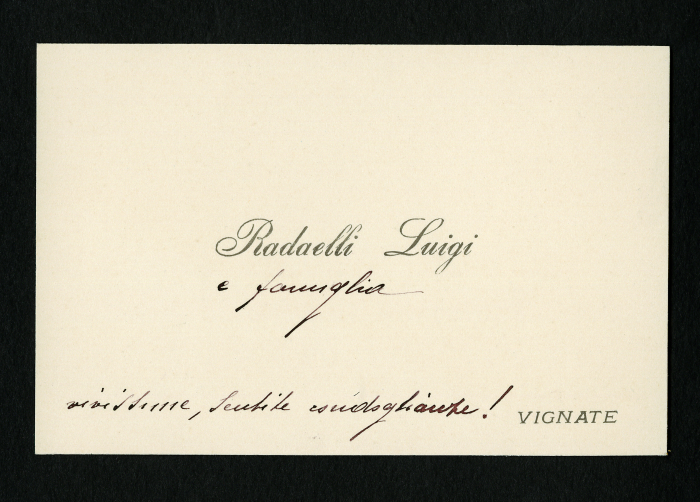 Radaelli Luigi
e famiglia
vivissime, sentite condoglianze!
VIGNATE